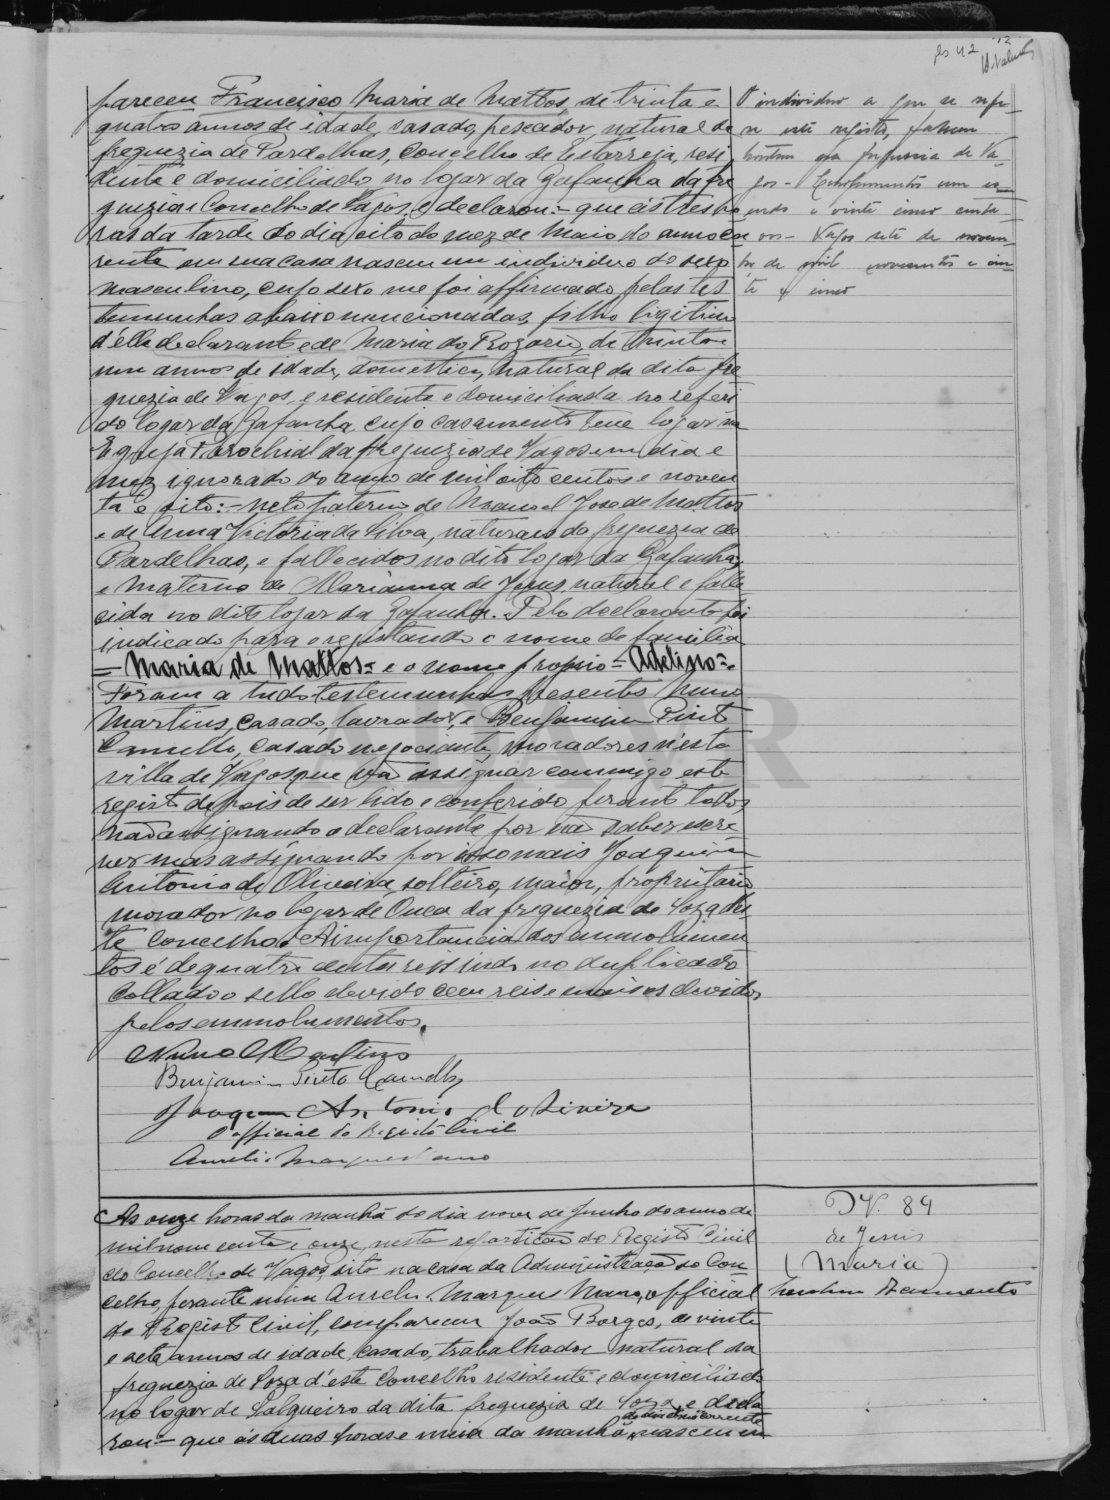 fls 42
pareceu Francisco Maria de Mattos, de trinta e
quatro annos de idade, casado, pescador, natural da
freguezia de Pardelhas, Concelho de Estarreja, resi
dente e domiciliado no logar da Gafanha da fre
guezia e Concelho de Vagos, e declarou:- que ás tres ho
ras da tarde do dia oito do mez de Maio do anno cor
rente em sua casa nasceu um individuo do sexo
masculino, cujo sexo me foi affirmado pelas tes
temunhas abaixo mencionadas, filho ligitimo
d'elle declarante e de Maria do Rozario, de trinta e
um annos de idade, domestica, natural da dita fre
guezia de Vagos, e residente e domiciliada no referi
do logar da Gafanha cujo casamento teve logar na
Egreja Parochial da freguezia de Vagos em dia e
mez ignorado do anno de mil oito centos e noven
ta e oito:- neto paterno de Manoel José de Mattos
e de Anna Victoria da Silva, naturaes da freguezia de
Pardelhas, e fallecidos no dito logar da Gafanha,
e materno de Marianna de Jesus, natural e falle
cida no dito logar da Gafanha. Pelo declarante foi
indicado para o registando o nome de familia
= Maria de Mattos = e o nome proprio = Adelino =.
Foram a tudo testemunhas presentes Nuno
Martins, casado, lavrador, e Benjamim Pinto
Camello, casado negociante, moradores n'esta
villa de Vagos, que vão assignar commigo este
registo depois de ser lido e conferido perante todos,
não assignando o declarante por não saber escre
ver mas assignando por isso mais Joaquim
Antonio de Oliveira, solteiro, maior, proprietario
morador no logar de Ouca da freguezia de Soza des
te Concelho. A importancia dos emmolumen
tos é de quatro centos reis indo no duplicado
collado o sello devido cem reis e mais os devidos
pelos emmolumentos.
Nuno Martins
Benjamim Pinto Camello
Joaquim Antonio d'Oliveira
O official do Registo Civil
Aurelio Marques Mano
O individuo a que se refe-
re este registo, faleceu
hontem na freguesia de Va-
gos - Emolumentos um es-
cudo e vinte cinco centa-
vos - Vagos sete de novem-
bro de mil novecentos e vin-
te e cinco
As onze horas da manhã do dia nove de Junho do anno de
mil nove centos e onze, nesta repartição do Registo Civil
do Concelho de Vagos, sito na casa da Administração do Con
celho, perante mim Aurelio Marques Mano, official
do Registo Civil, compareceu João Borges, de vinte
e sete annos de idade, casado, trabalhador natural da
freguezia de Soza d'este Concelho residente e domiciliado
no logar de Salgueiro da dita freguezia de Soza, e decla
do dia dois corrente
rou:- que ás duas horas e meia da manhã, nasceu em
Nº. 84
de Jesus
(Maria)